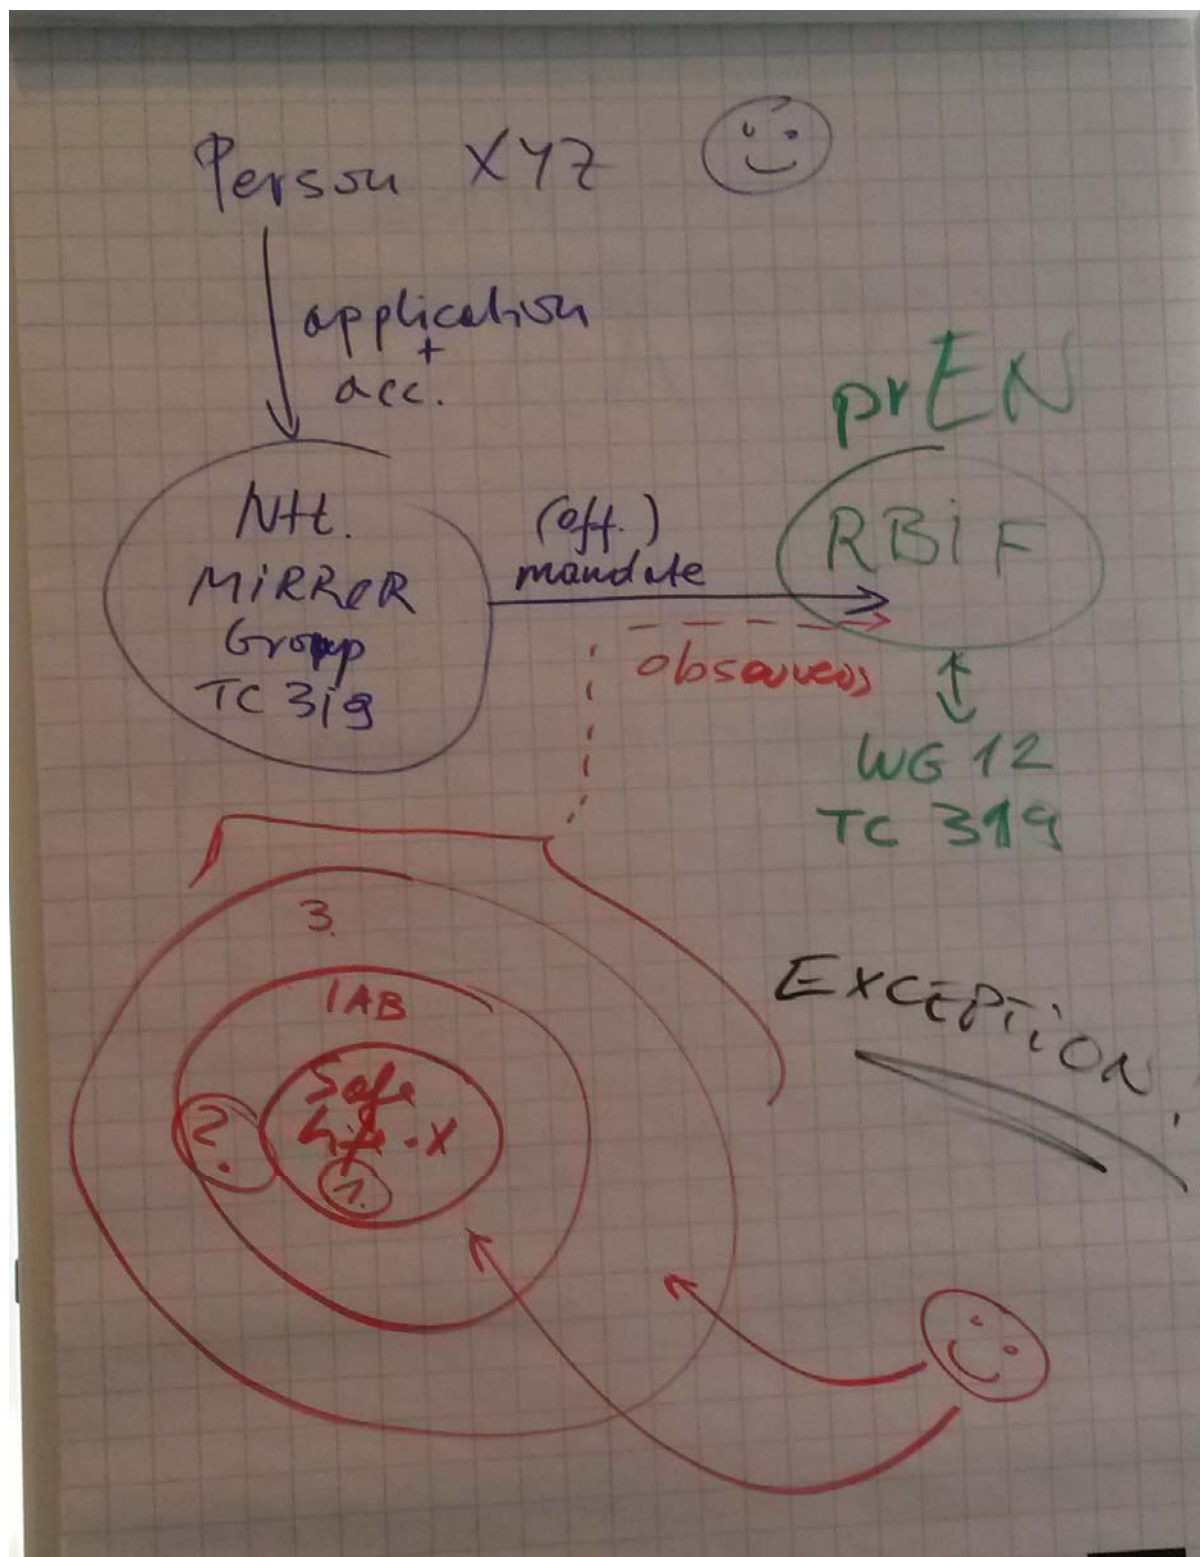 Person XYZ
application
+
acc.
prEN
Ntl.
MiRRoR
Group
TC 319
(off.)
mandate
RBiF
observers
WG 12
TC 319
3.
IAB
Safe
Life-X
1.
2.
EXCEPTiON!